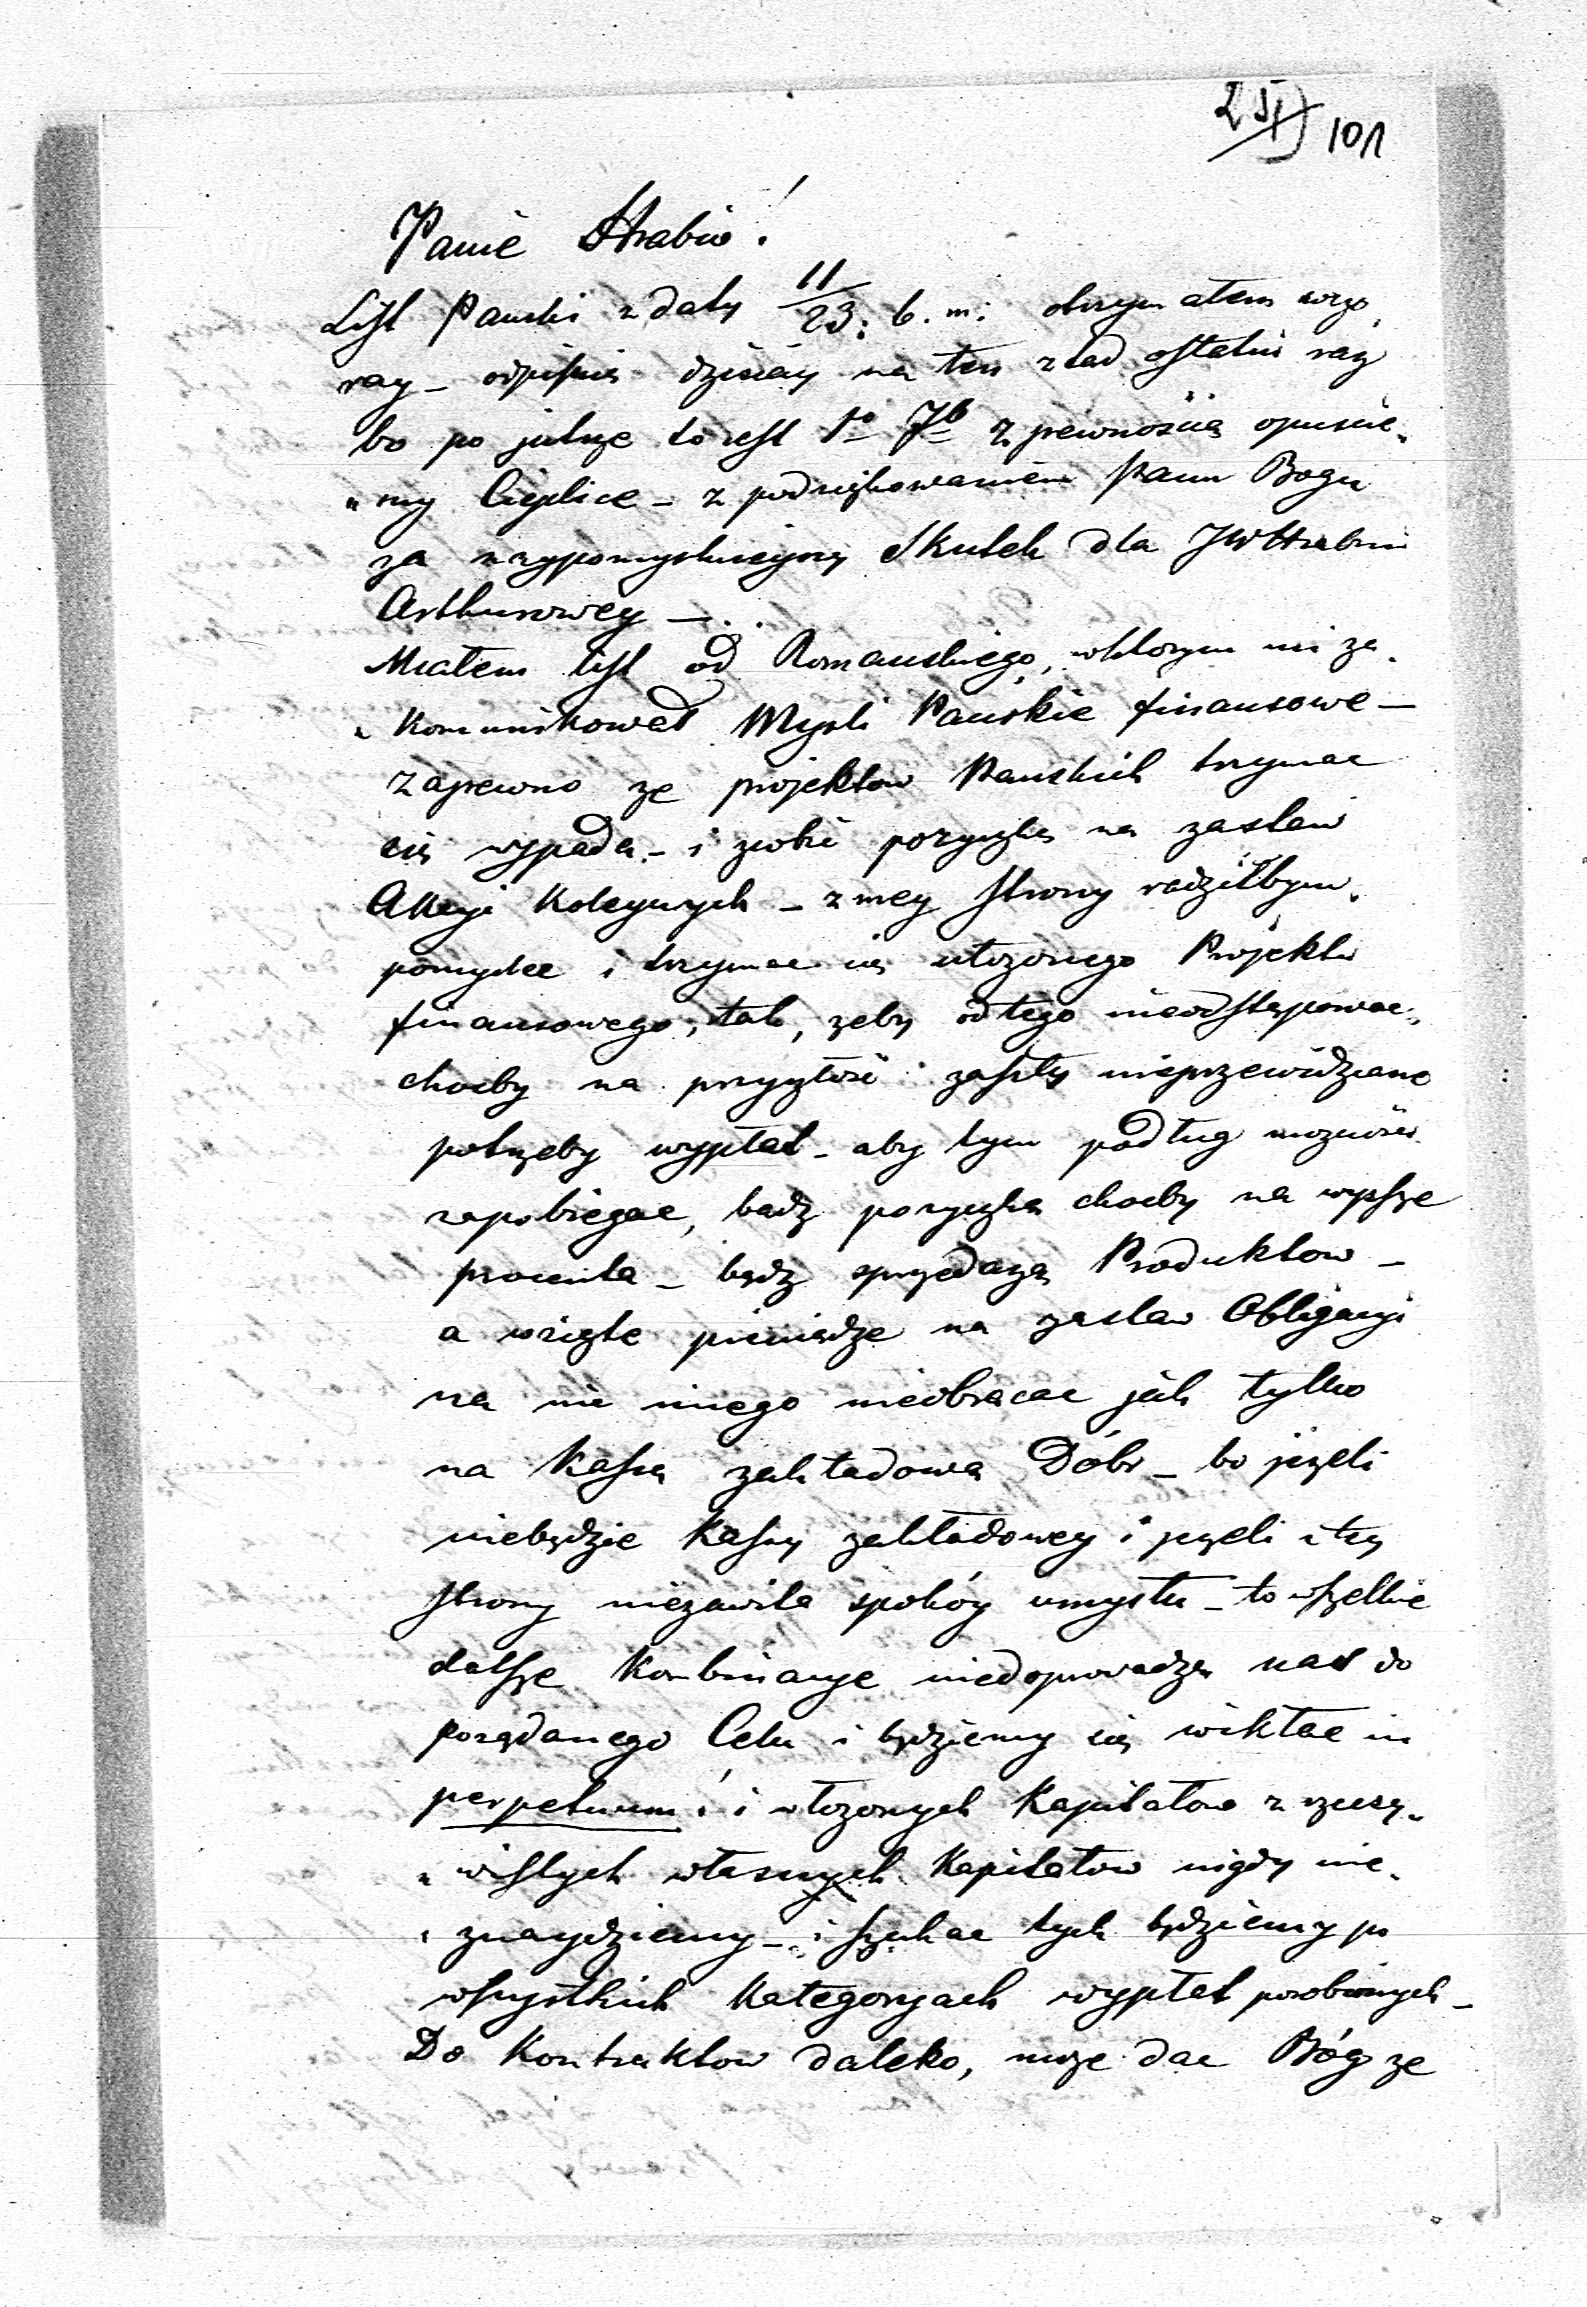 251) 101
Panie Hrabio!
List Pański z daty 11/23: b. m: otrzymałem wczo„
ray – odpisuię dzisiay na ten ztąd ostatni raz
bo po jutrze to jest 1o 7b z pewnością opuście„
„my Cieplice – z podziękowaniem Panu Bogu
za naypomyślnieyszy Skutek dla JW Hrabini
Arthurowey – . .
Miałem list od Romańskiego, w ktorym mi za„
„Kommunikował Myśli Pańskie finansowe –
zapewno ze projektow Pańskich trzymac
się wypada – i zrobić pozyczkę na zastaw
Akcyi Koleynych – z mey Strony radziłbym„
pomysłee i trzymac się ułozonego Projektu
finansowego, tak, zeby od tego nieodstępowac„
choćby na przyszłość zaszły nieprzewidziane
potrzeby wypłat – aby tym podług moznosci
zapobiegac, badz pozyczką choćby na wyższe
procenta – bądz sprzedazą Produktow –
a wzięte pieniądze na zastaw Obligacyi
na nic innego nieobracac jak tylko
na Kassę zakładową Dóbr – bo jezeli
niebędzie Kassy zakładowey i jezeli z tey
strony niezawita spokóy umysłu – to wszelkie
dalsze Kombinacye niedoprowadzą nas do
porządanego Celu i będziemy się wikłac in
perpetuum! i włozonych Kapitałow z rzeczy„
„wistych własnych Kapitałow nigdy nie„
„znaydziemy – i szukac tych będziemy po
wszystkich Kategoryach wypłat porobionych –
Do Kontraktow daleko, moze dac Bóg ze